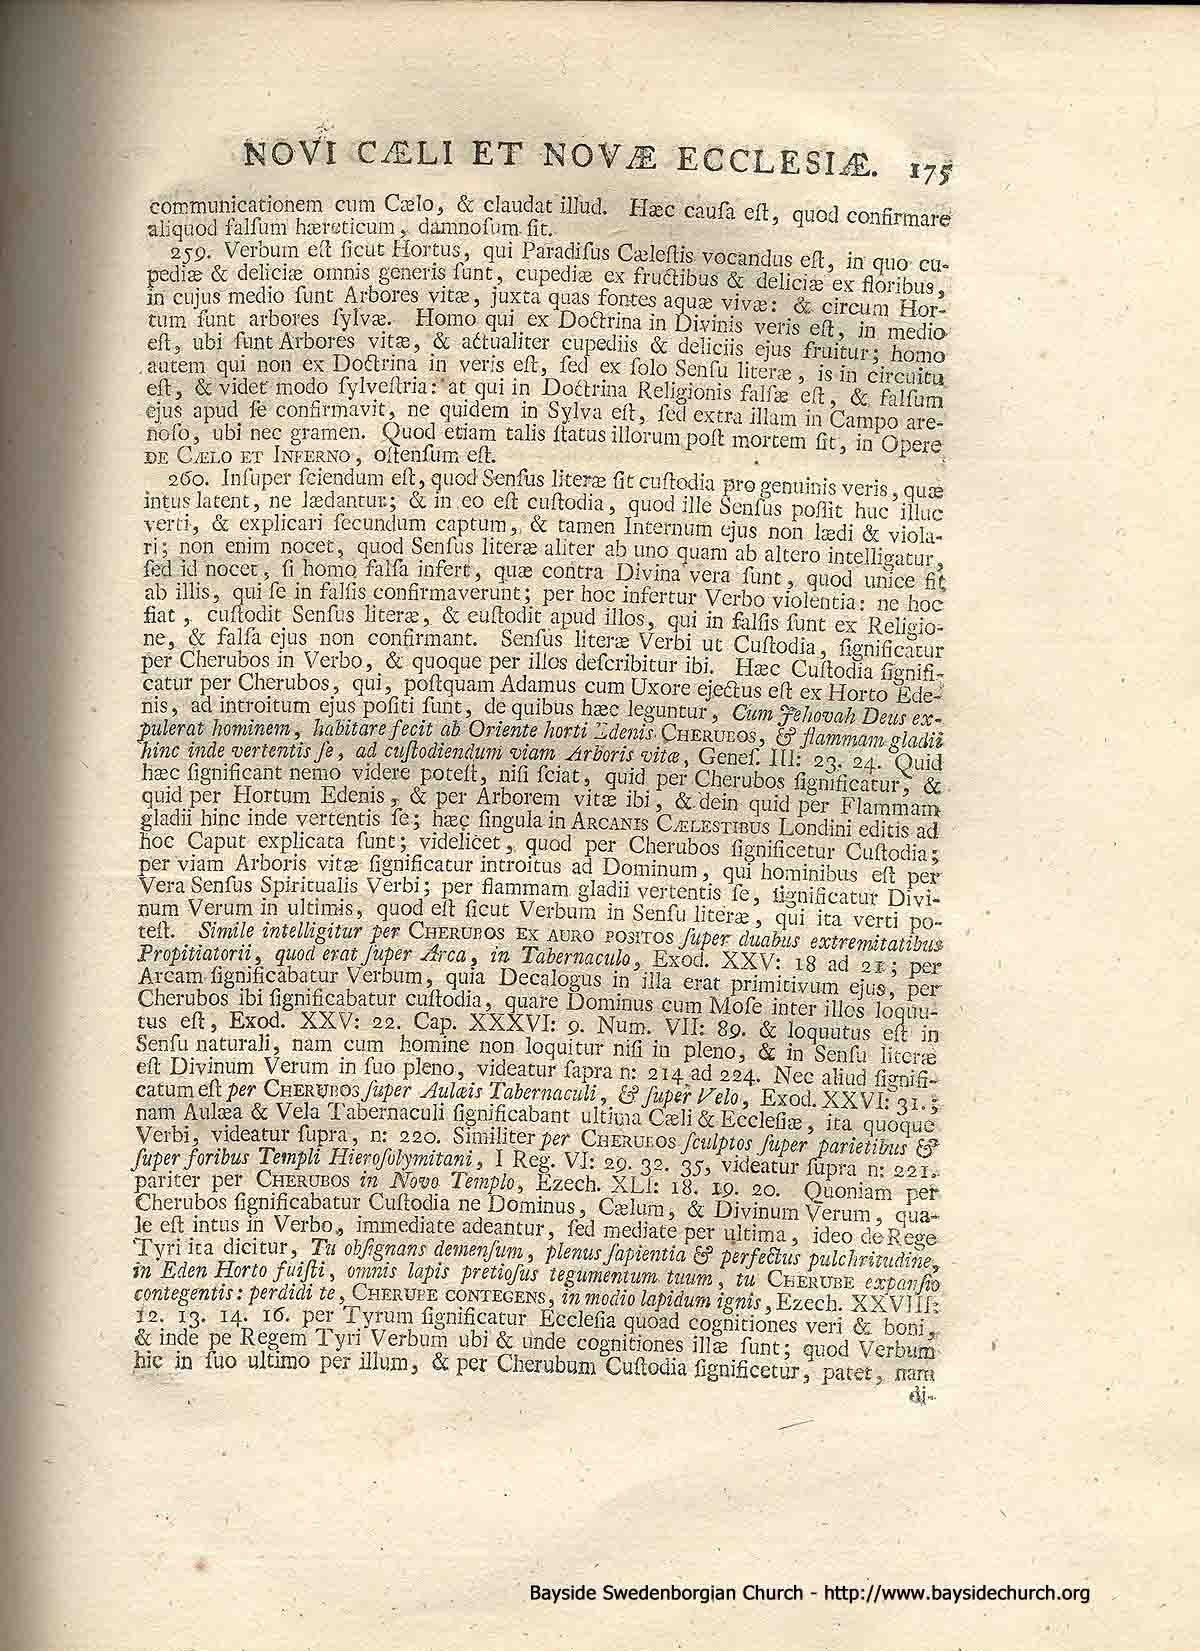 NOVI CÆLI ET NOVÆ ECCLESIÆ. 175
communicationem cum Cælo, & claudat illud. Hæc cauſa eſt, quod confirmare
aliquod falſum hæreticum, damnoſum ſit.
259. Verbum eſt ſicut Hortus, qui Paradiſus Cæleſtis vocandus eſt, in quo cu-
pediæ & deliciæ omnis generis ſunt, cupediæ ex fructibus & deliciæ ex floribus,
in cujus medio ſunt Arbores vitæ, juxta quas fontes aquæ vivæ: & circum Hor-
tum ſunt arbores ſylvæ. Homo qui ex Doctrina in Divinis veris eſt, in medio
eſt, ubi ſunt Arbores vitæ, & actualiter cupediis & deliciis ejus fruitur; homo
autem qui non ex Doctrina in veris eſt, ſed ex ſolo Senſu literæ, is in circuitu
eſt, & videt modo ſylveſtria: at qui in Doctrina Religionis falſæ eſt, & falſum
ejus apud ſe confirmavit, ne quidem in Sylva eſt, ſed extra illam in Campo are-
noſo, ubi nec gramen. Quod etiam talis ſtatus illorum poſt mortem ſit, in Opere
DE CÆLO ET INFERNO, oſtenſum eſt.
260. Inſuper ſciendum eſt, quod Senſus literæ ſit cuſtodia pro genuinis veris, quæ
intus latent, ne lædantur; & in eo eſt cuſtodia, quod ille Senſus poſſit huc illuc
verti, & explicari ſecundum captum, & tamen Internum ejus non lædi & viola-
ri; non enim nocet, quod Senſus literæ aliter ab uno quam ab altero intelligatur,
ſed id nocet, ſi homo falſa infert, quæ contra Divina vera ſunt, quod unice fit
ab illis, qui ſe in falſis confirmaverunt; per hoc infertur Verbo violentia: ne hoc
fiat, cuſtodit Senſus literæ, & euſtodit apud illos, qui in falſis ſunt ex Religio-
ne, & falſa ejus non confirmant. Senſus literæ Verbi ut Cuſtodia, ſignificatur
per Cherubos in Verbo, & quoque per illos deſcribitur ibi. Hæc Cuſtodia ſignifi-
catur per Cherubos, qui, poſtquam Adamus cum Uxore ejectus eſt ex Horto Ede-
nis, ad introitum ejus poſiti ſunt, de quibus hæc leguntur, Cum Jehovah Deus ex-
pulerat hominem, habitare fecit ab Oriente horti Edenis CHERUBOS, & flammam gladii
hinc inde vertentis ſe, ad cuſtodiendum viam Arboris vitæ, Geneſ. III: 23. 24. Quid
hæc ſignificant nemo videre poteſt, niſi ſciat, quid per Cherubos ſignificatur, &
quid per Hortum Edenis, & per Arborem vitæ ibi, & dein quid per Flammam
gladii hinc inde vertentis ſe; hæc ſingula in ARCANIS CÆLESTIBUS Londini editis ad
hoc Caput explicata ſunt; videlicet, quod per Cherubos ſignificetur Cuſtodia;
per viam Arboris vitæ ſignificatur introitus ad Dominum, qui hominibus eſt per
Vera Senſus Spiritualis Verbi; per flammam gladii vertentis ſe, ſignificatur Divi-
num Verum in ultimis, quod eſt ſicut Verbum in Senſu literæ, qui ita verti po-
teſt. Simile intelligitur per CHERUBOS EX AURO POSITOS ſuper duabus extremitatibus
Propitiatorii, quod erat ſuper Arca, in Tabernaculo, Exod. XXV: 18 ad 21; per
Arcam ſignificabatur Verbum, quia Decalogus in illa erat primitivum ejus, per
Cherubos ibi ſignificabatur cuſtodia, quare Dominus cum Moſe inter illos loquu-
tus eſt, Exod. XXV: 22. Cap. XXXVI: 9. Num. VII: 89. & loquutus eſt in
Senſu naturali, nam cum homine non loquitur niſi in pleno, & in Senſu literæ
eſt Divinum Verum in ſuo pleno, videatur ſapra n: 214 ad 224. Nec aliud ſignifi-
catum eſt per CHERUBOS ſuper Aulæis Tabernaculi, & ſuper Velo, Exod. XXVI: 31.;
nam Aulæa & Vela Tabernaculi ſignificabant ultima Cæli & Eccleſiæ, ita quoque
Verbi, videatur ſupra, n: 220. Similiter per CHERUBOS ſculptos ſuper parietibus &
ſuper foribus Templi Hieroſolymitani, I Reg. VI: 29. 32. 35, videatur ſupra n: 221.
pariter per CHERUBOS in Novo Templo, Ezech. XLI: 18. 19. 20. Quoniam per
Cherubos ſignificabatur Cuſtodia ne Dominus, Cælum, & Divinum Verum, qua-
le eſt intus in Verbo, immediate adeantur, ſed mediate per ultima, ideo de Rege
Tyri ita dicitur, Tu obſignans demenſum, plenus ſapientia & perfectus pulchritudine,
in Eden Horto fuiſti, omnis lapis pretioſus tegumentum tuum, tu CHERUBE expanſio
contegentis: perdidi te, CHERUBE CONTEGENS, in modio lapidum ignis, Ezech. XXVIII:
12. 13. 14. 16. per Tyrum ſignificatur Eccleſia quoad cognitiones veri & boni,
& inde pe Regem Tyri Verbum ubi & unde cognitiones illæ ſunt; quod Verbum
hic in ſuo ultimo per illum, & per Cherubum Cuſtodia ſignificetur, patet, nam
di-
Bayside Swedenborgian Church - http://www.baysidechurch.org